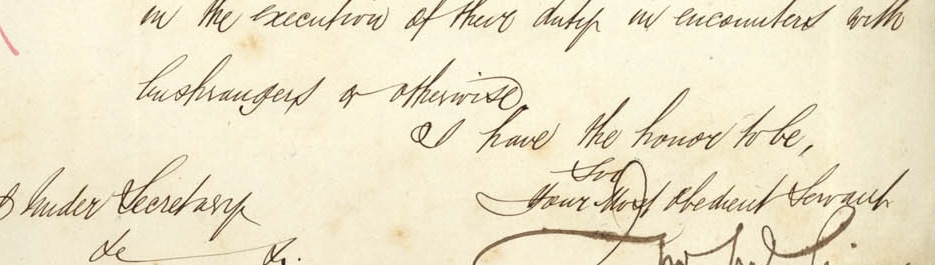 in the execution of their duty in encounters with
bushrangers or otherwise.
I have the honor to be,
Sir
Your Most Obedient Servant
Under Secretary
&c &c.